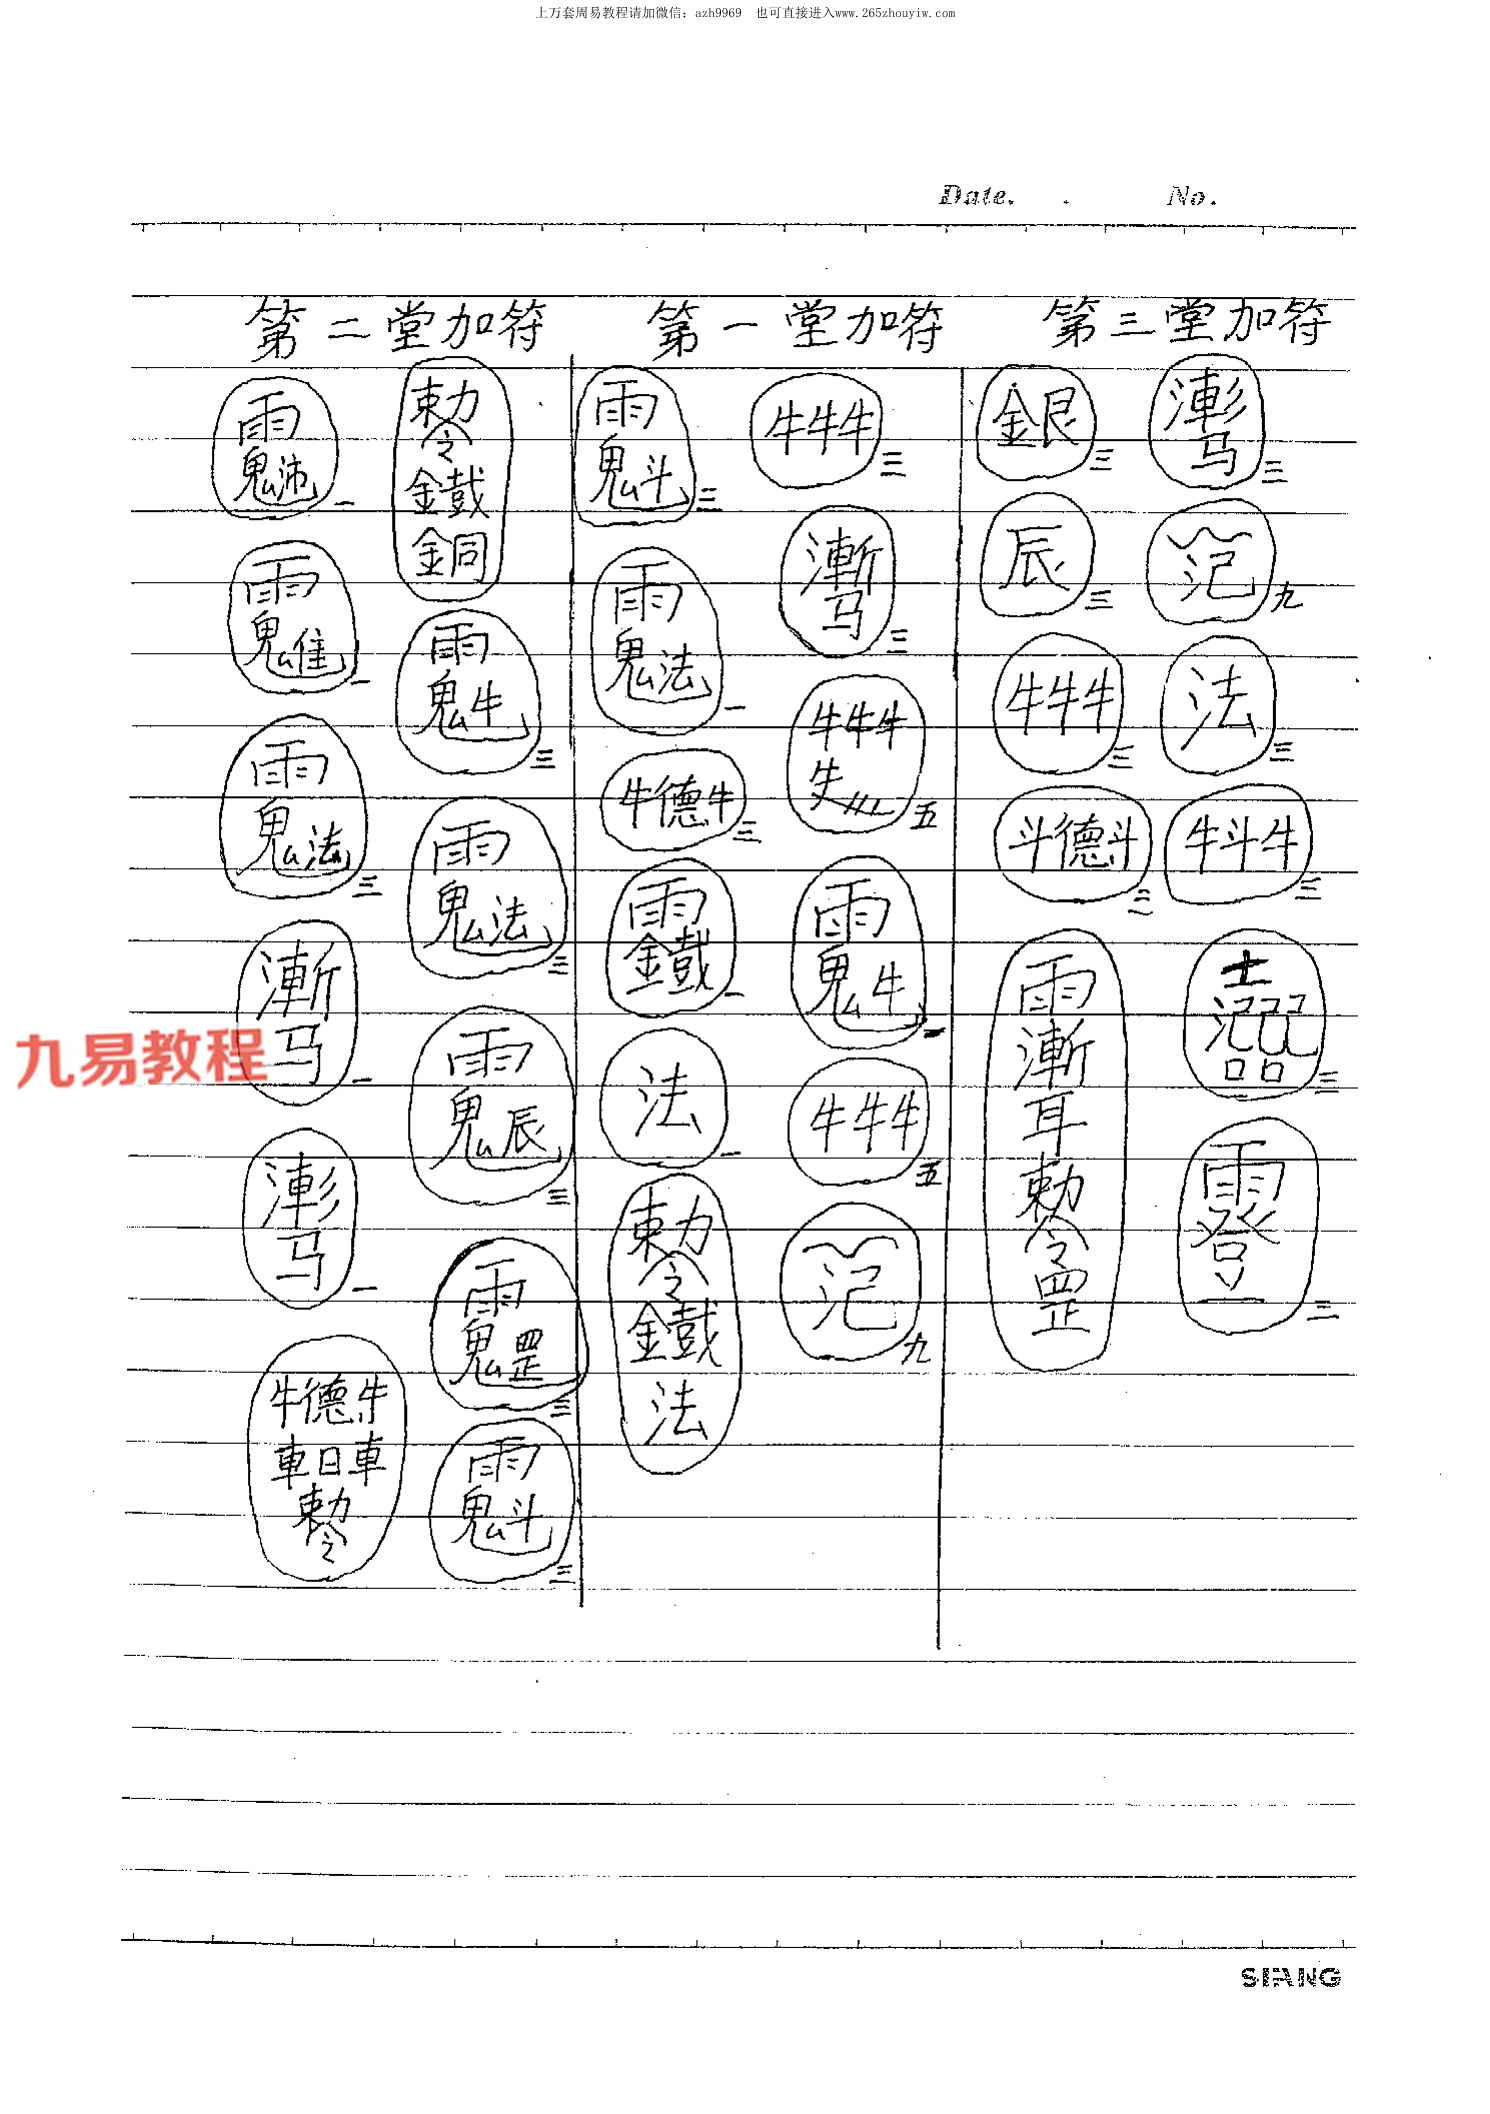 上万套周易教程请加微信：azh9969 也可直接进入www.265zhouyiw.com
Date. . No.
第二堂加符 第一堂加符 第三堂加符
雨
鬼
一
雨
鬼隹
一
雨
鬼法
三
漸
马
一
漸
马
一
牛德牛
車日車
勅
令
勅
令
鐵
銅
雨
鬼牛
三
雨
鬼法
三
雨
鬼辰
三
雨
鬼罡
三
雨
鬼斗
三
雨
鬼斗
三
雨
鬼法
一
牛德牛
三
雨
鐵
一
法
一
勅
令
鐵
法
牛牛牛
三
漸
马
三
牛牛牛
五
雨
鬼牛
一
牛牛牛
五
氾
九
銀
三
辰
三
牛牛牛
三
斗德斗
三
雨
漸
耳
勅
令
罡
马
三
氾
九
法
三
牛斗牛
三
三
雨
登
三
九易教程
SIANG